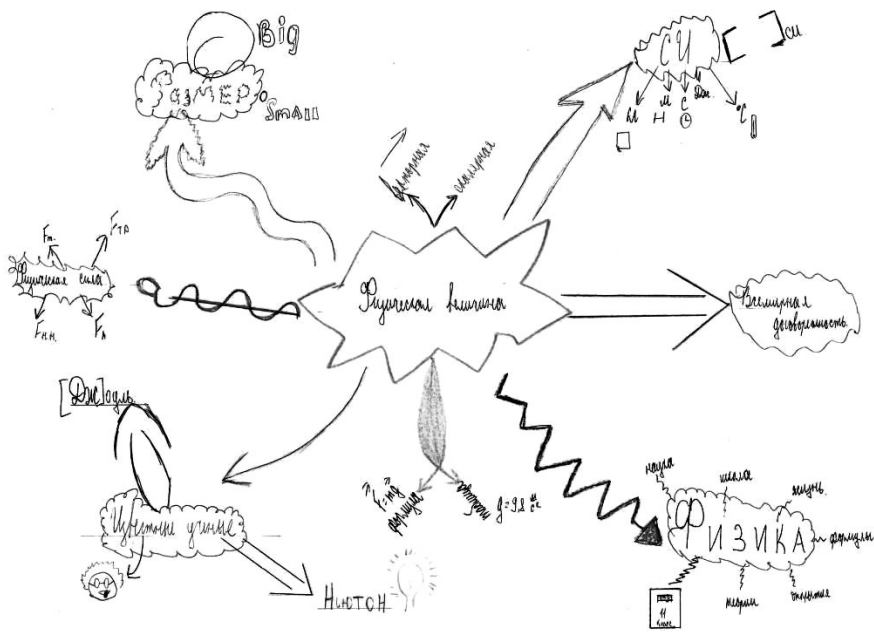 Big
Размер
Small
СИ
[ ] СИ
М
Н
С
Дж
°C
векторная
скалярная
Fт.
Fтр
Физическая сила
Fн.н.
FА
Физическая величина
Всемирная
договоренность
[Дж]оуль
Известные ученые
Ньютон
F=mg
формула
g=9,8 м/с²
наука
школа
жизнь
ФИЗИКА
формулы
11
класс
теории
открытие